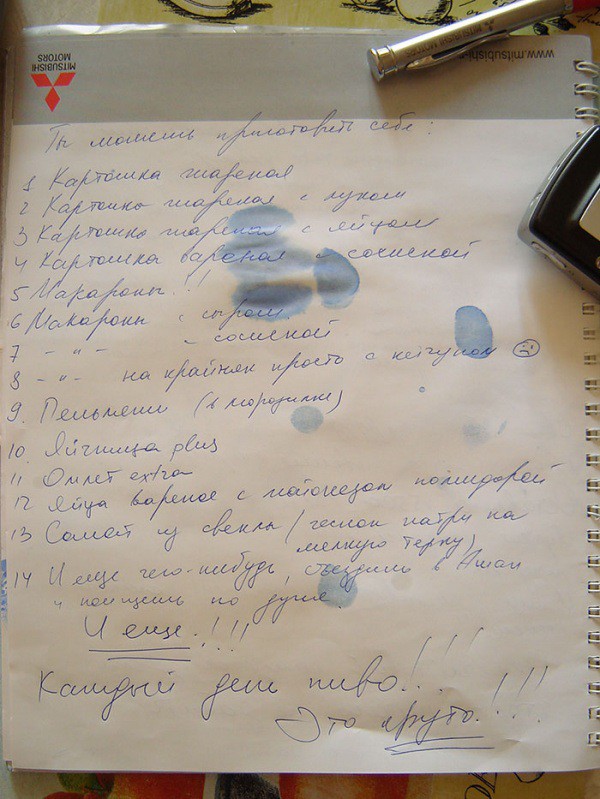 MITSUBISHI
MOTORS
MITSUBISHI MOTORS
www.mitsubishi-m
Ты можешь приготовить себе:
1 Картошка жареная
2 Картошка жареная с луком
3 Картошка жареная с яйцом
4 Картошка вареная с сосиской
5 Макароны!!
6 Макароны с сыром
7 -"- с сосиской
8 -"- на крайняк просто с кетчупом ☹
9. Пельмени (в морозилке)
10. Яйчница plus
11 Омлет extra
12 Яйца вареное с майонезом помидорой
13 Салат из свеклы (чеснок натри на
мелкую терку)
14 И еще чего-нибудь, съездишь в Ашан
и поищешь по душе.
И еще!!!!
Каждый день пиво!...!!!
Это круто.!!!!